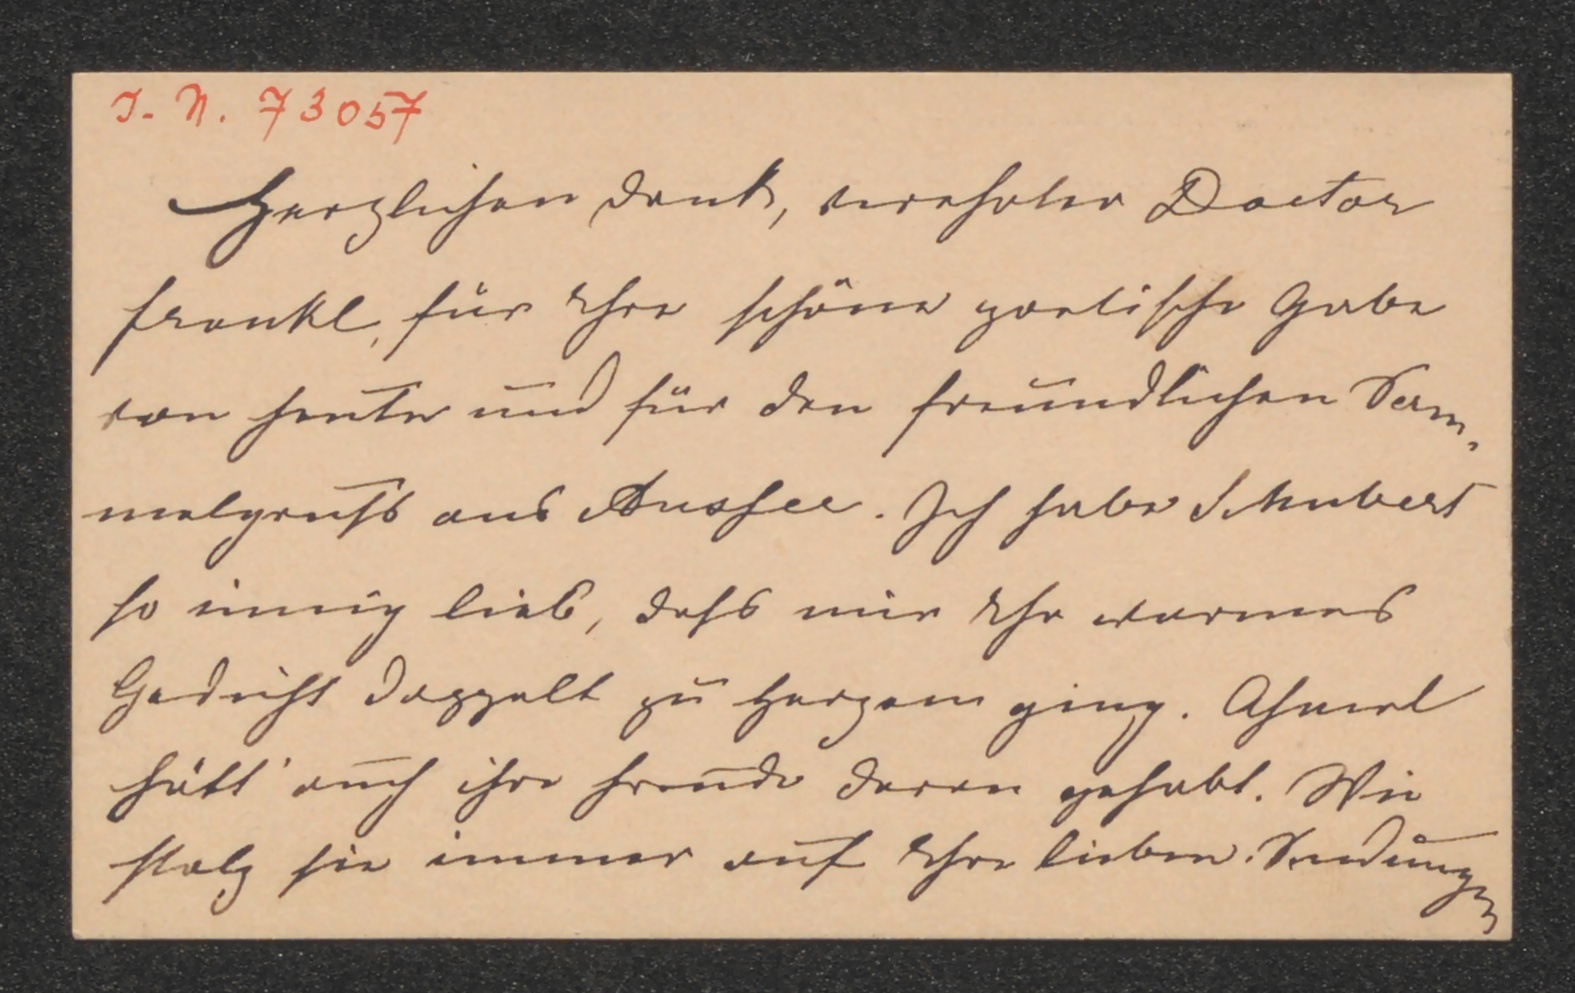 I. N. 73057
Herzlichen Dank, verehrter Doctor
Frankl, für Ihre schöne poetische Gabe
von heute und für den freundlichen Sem-
melgruß aus Aussee. Ich habe Schubert
so innig lieb, daß mir Ihr warmes
Gedicht doppelt zu Herzen ging.
hätt' auch ihre Freude daran gehabt. Wie
stolz sie immer auf Ihre lieben Sendungen